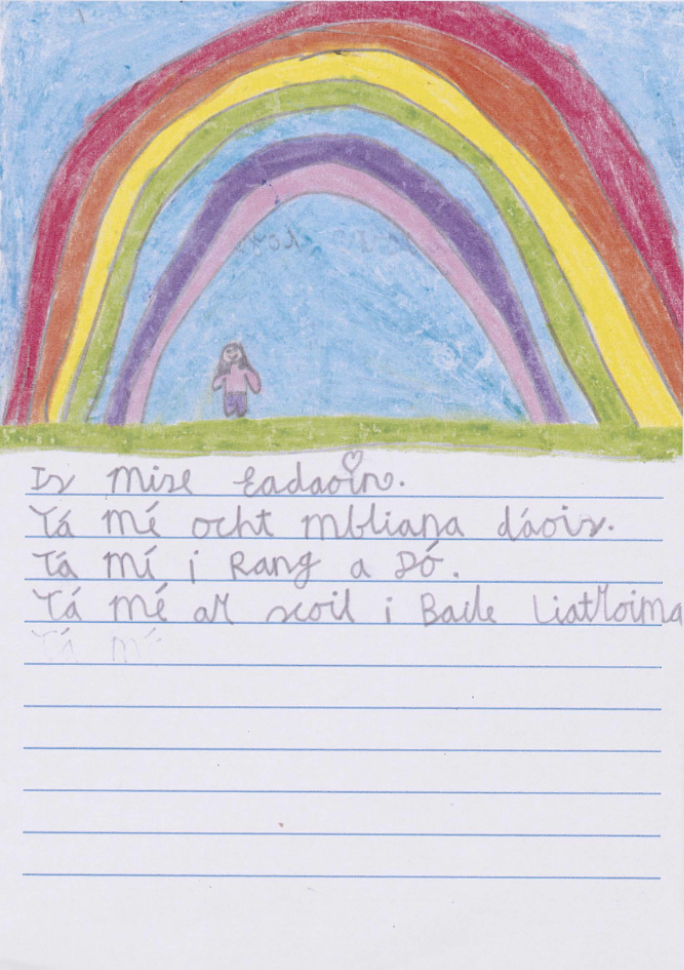 Is mise Eadaoin.
Tá mé ocht mbliana d'áois.
Tá mí i Rang a Dó.
Tá mé ar scoil i Baile Liatroima
Tá mé